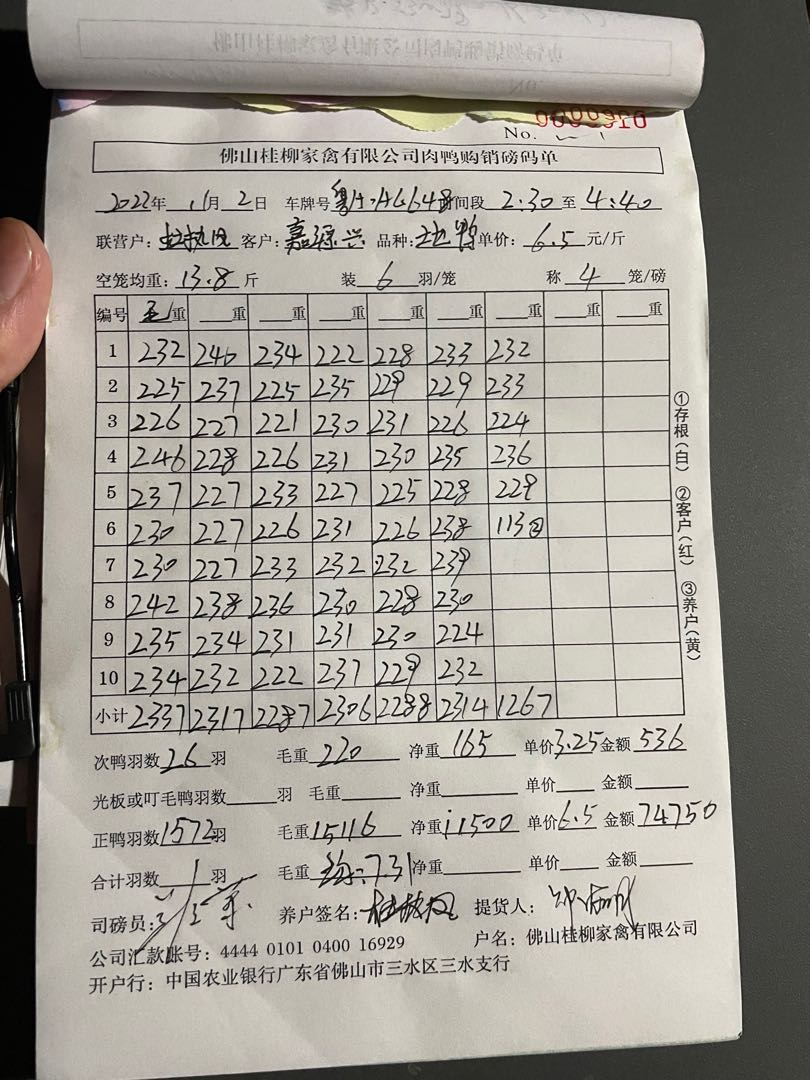 No.
佛山桂柳家禽有限公司肉鸭购销磅码单
2022年 11月 2日 车牌号 间段 2:30 至 4:40
联营户: 客户: 嘉源兴 品种: 土鸭 单价: 6.5 元/斤
空笼均重: 13.8 斤 装 6 羽/笼 称 4 笼/磅
编号 毛重 重 重 重 重 重 重 重 重
1 232 246 234 222 228 233 232
2 225 237 225 235 229 229 233
3 226 227 221 230 231 226 224
4 246 228 226 231 230 235 236
5 237 227 233 227 225 228 229
6 230 227 226 231 226 238 113②
7 230 227 233 232 232 239
8 242 238 236 230 228 230
9 235 234 231 231 230 224
10 234 232 222 237 229 232
小计 2337 2317 2287 2306 2288 2314 1267
①存根(白) ②客户(红) ③养户(黄)
次鸭羽数 26 羽 毛重 220 净重 165 单价 3.25 金额 536
光板或叮毛鸭羽数 羽 毛重 净重 单价 金额
正鸭羽数 1572 羽 毛重 15116 净重 11500 单价 6.5 金额 74750
合计羽数 羽 毛重 均:7.31 净重 单价 金额
司磅员: 养户签名: 提货人:
公司汇款账号: 4444 0101 0400 16929 户名: 佛山桂柳家禽有限公司
开户行: 中国农业银行广东省佛山市三水区三水支行